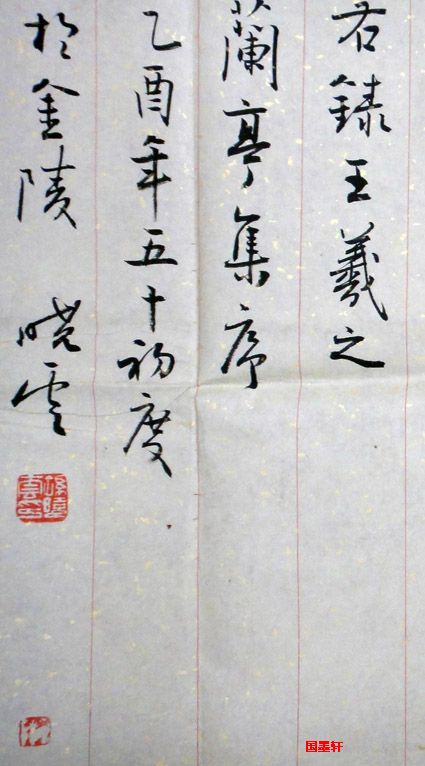 右錄王羲之
蘭亭集序
乙酉年五十初度
於金陵 曉雲
孫曉雲印
国墨轩